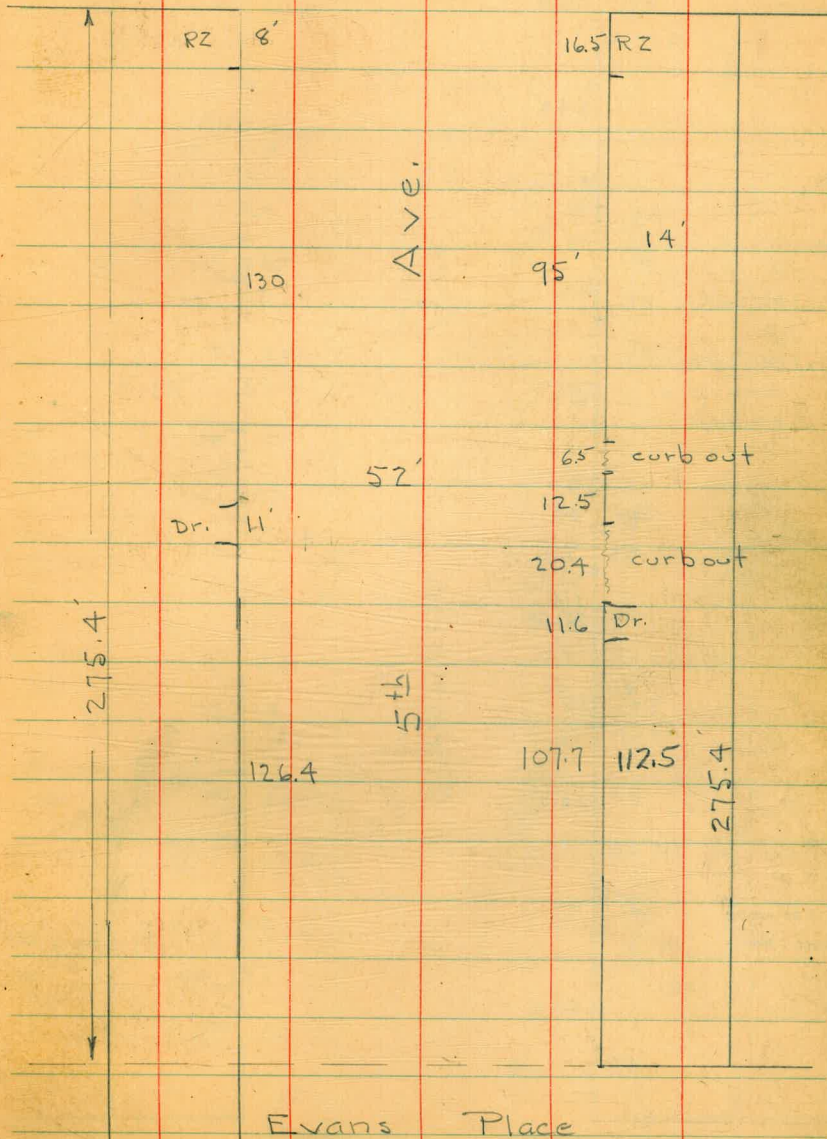 RZ 8' 16.5 RZ
Ave.
14'
130 95'
6.5 curb out
52'
12.5
Dr. 11'
20.4 curb out
11.6 Dr.
275.4'
5th
126.4 107.7 112.5 275.4'
Evans Place